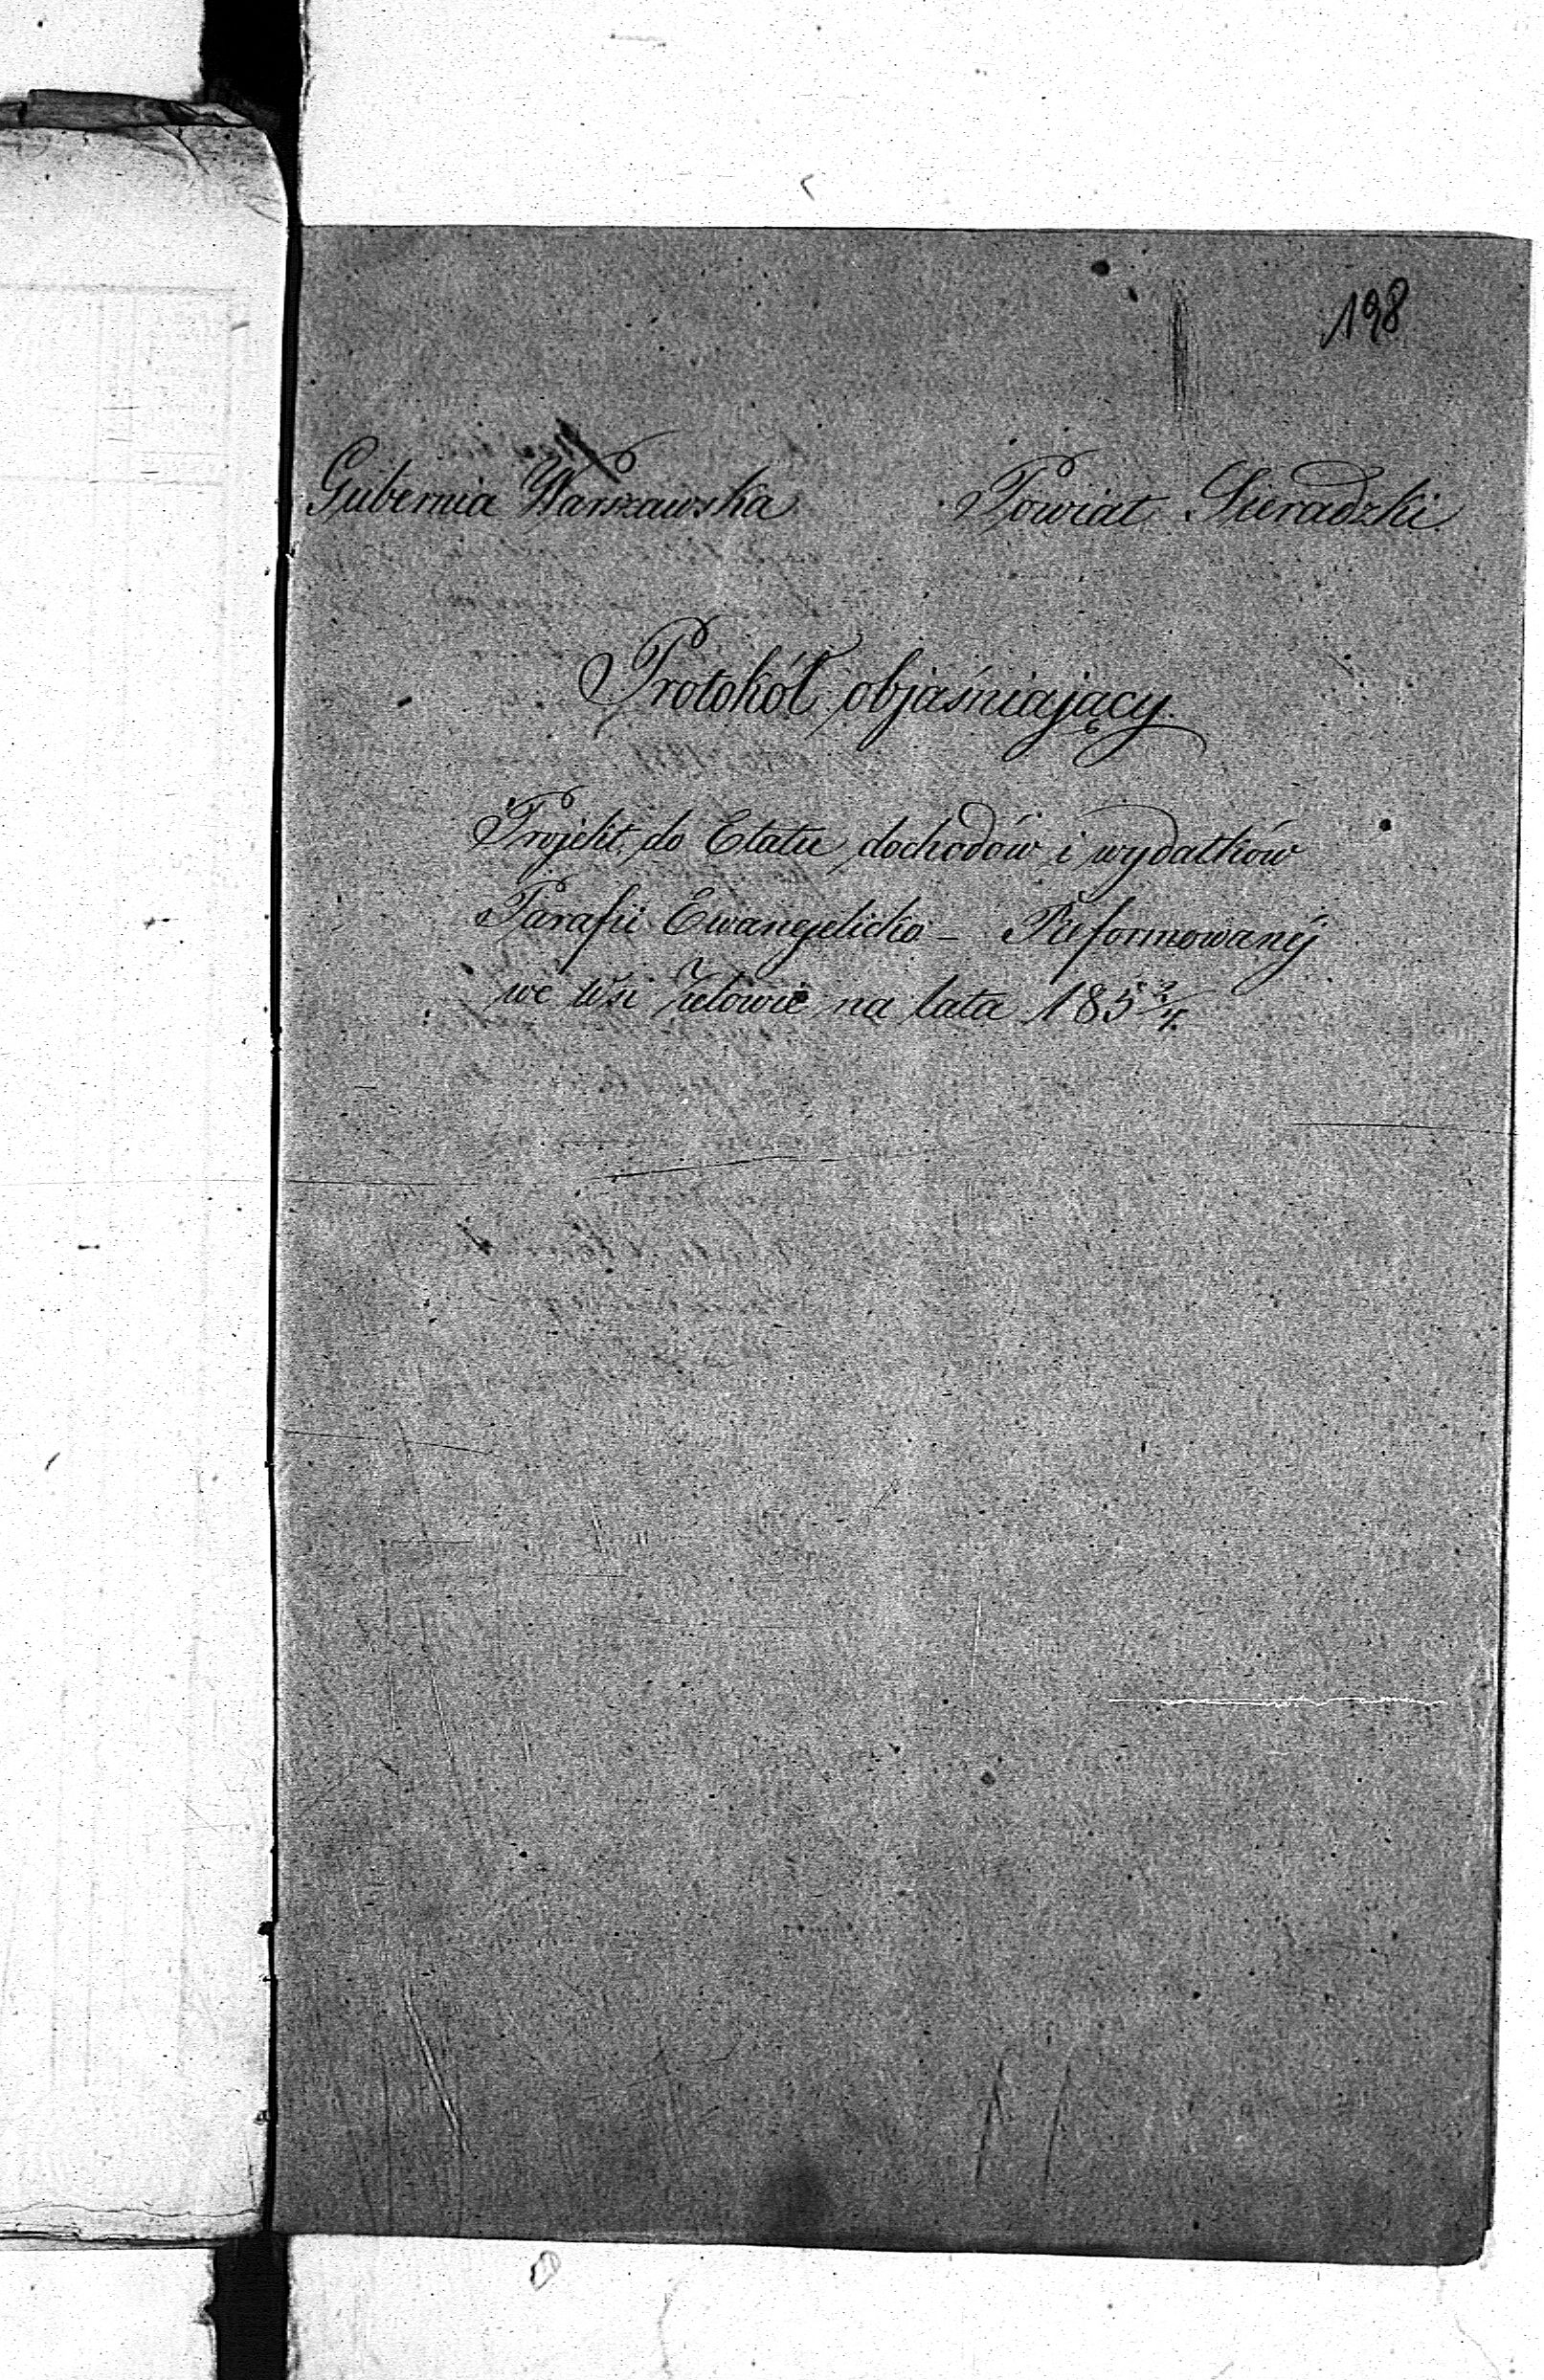 198
Gubernia Warszawska Powiat Sieradzki
Protokół objaśniający
Projekt do Etatu dochodów i wydatków
Parafii Ewangelicko - Reformowanéj
we Wsi Zelowie na lata 185 2/4.